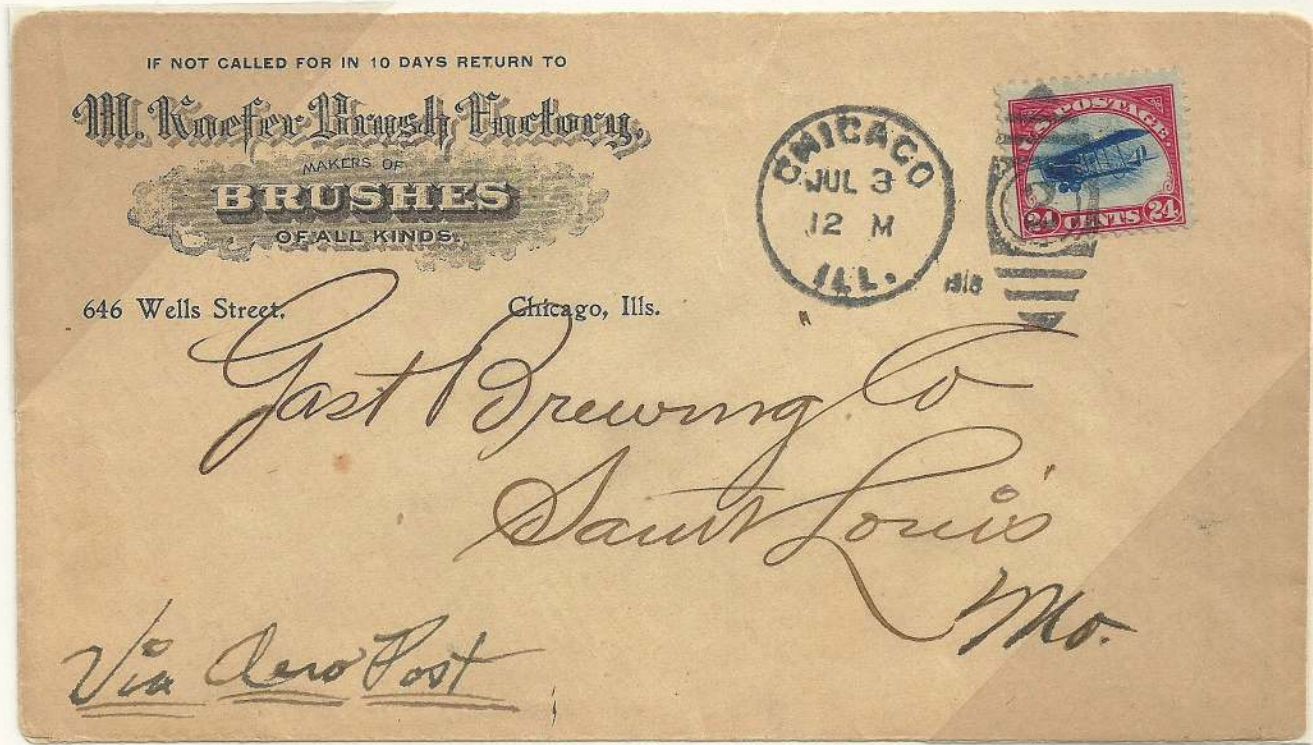 IF NOT CALLED FOR IN 10 DAYS RETURN TO
M. Kaefer Brush Factory,
MAKERS OF
BRUSHES
OF ALL KINDS.
646 Wells Street. Chicago, Ills.
CHICAGO
JUL 3
12 M
ILL.
1918
U.S. POSTAGE.
24 CENTS 24
Gast Brewing Co
Saint Louis
Mo.
Via Aero Post